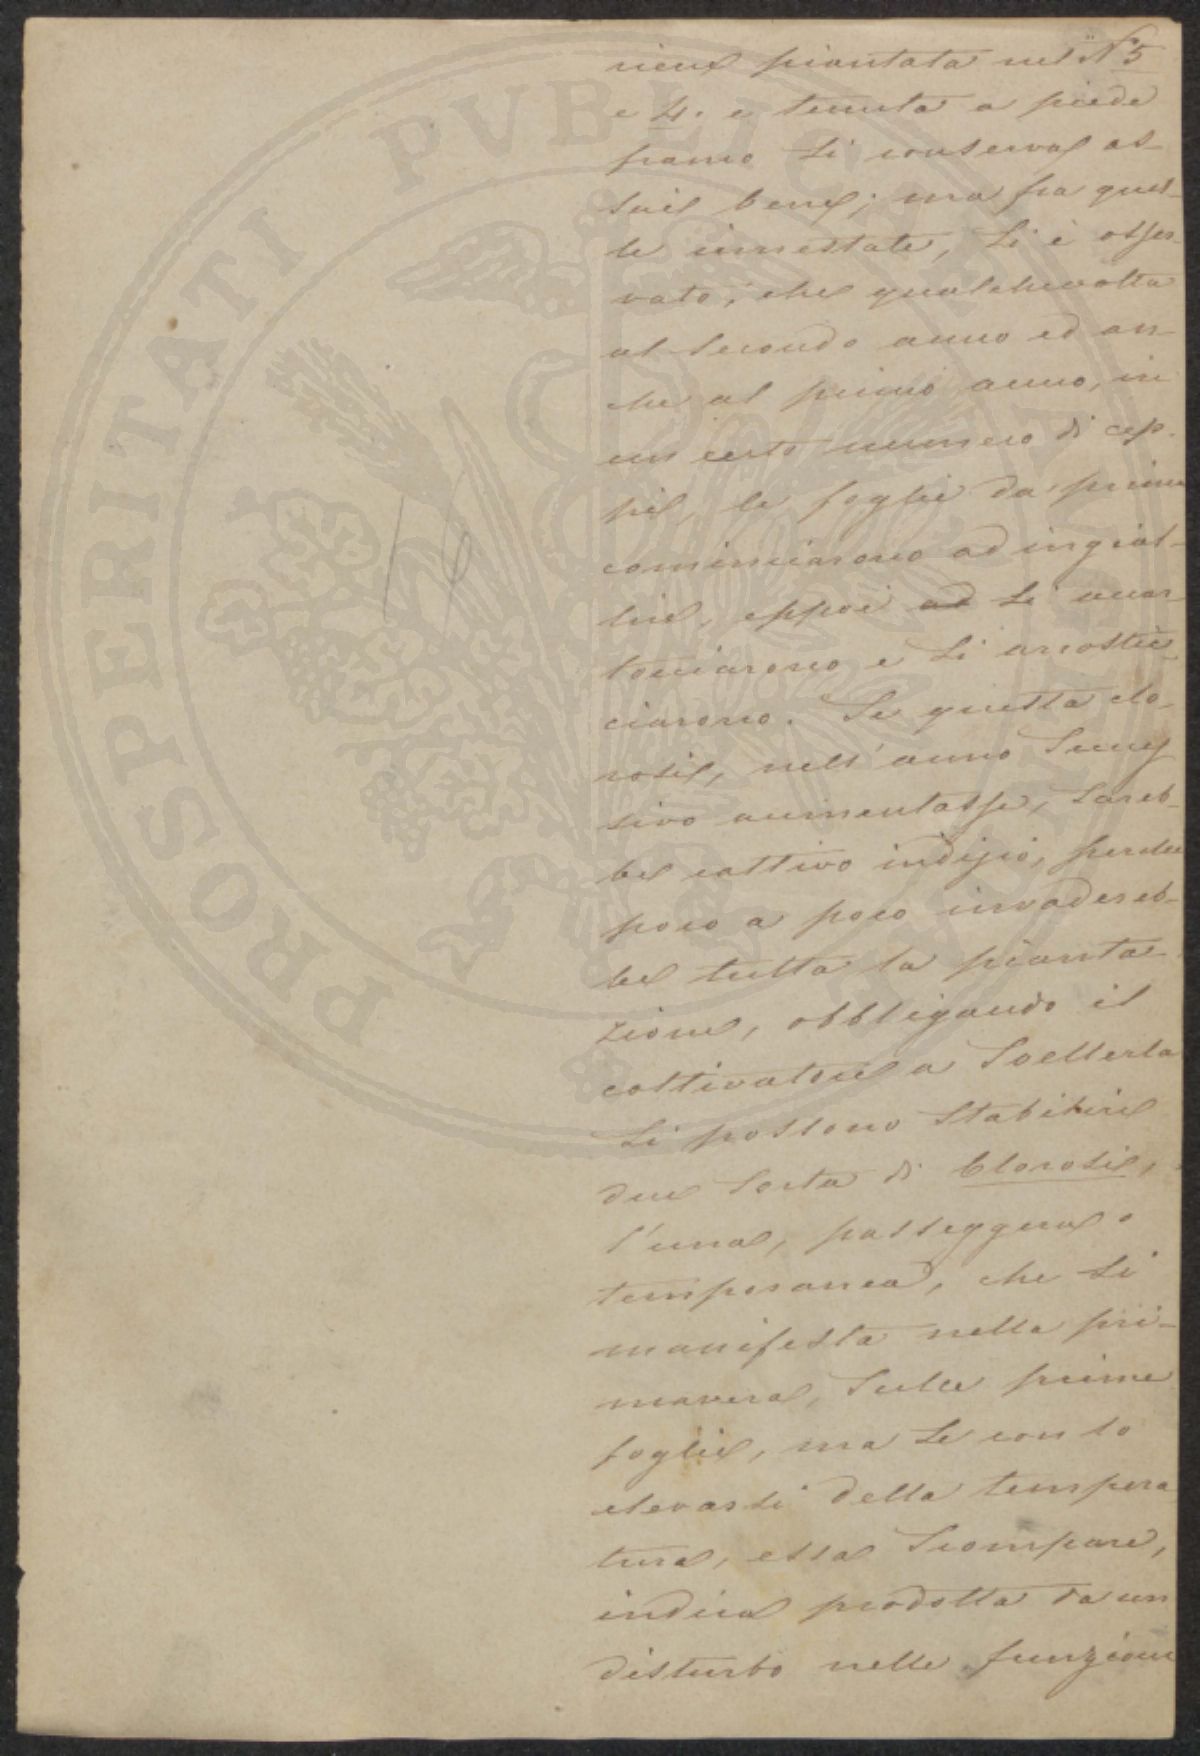 viene piantata nel N° 5
e 4. e tenuta a piede
franco si conserva as-
sai bene; ma fra quel-
le innestate, si è osser-
vato, che qualchevolta
al secondo anno ed an-
che al primo anno, in
un certo numero di cep-
pi, le foglie da prima
cominciarono ad ingial-
lire, eppoi ad si accar-
tocciarono e si arrostic-
ciarono. Se questa clo-
rosi, nell'anno succes
sivo aumentasse, sareb-
be cattivo indizio, perche
poco a poco invadereb-
be tutta la pianta-
zione, obbligando il
coltivatore a svellerla
Si possono stabilire
due sorta di Clorosi,
l'una, passeggera o
temporanea, che si
manifesta nella pri-
mavera, sulle prime
foglie, ma se con lo
elevarsi della tempera
tura, essa scompare,
indica prodotta da un
disturbo nelle funzioni
PROSPERITATI PVBLICAE AVGENDAE